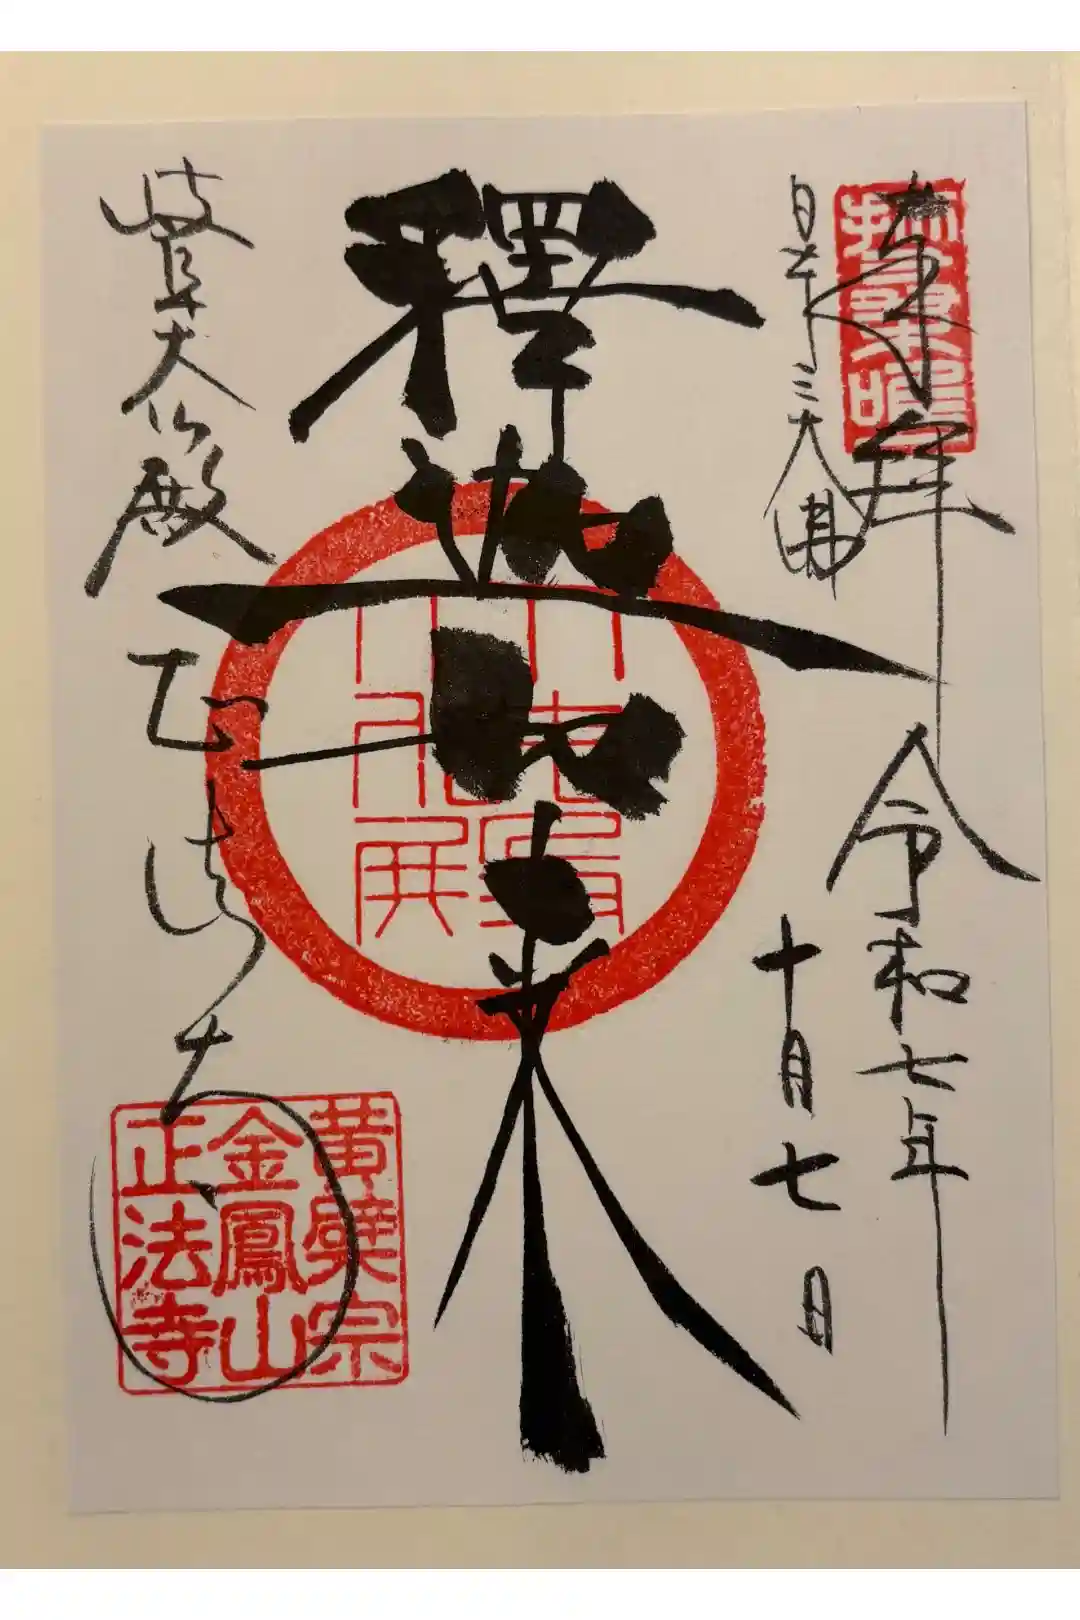 奉拝
令和七年
十月七日
日本三大佛
釋迦如来
岐阜大仏殿
正法寺
黄檗宗
金鳳山
正法寺